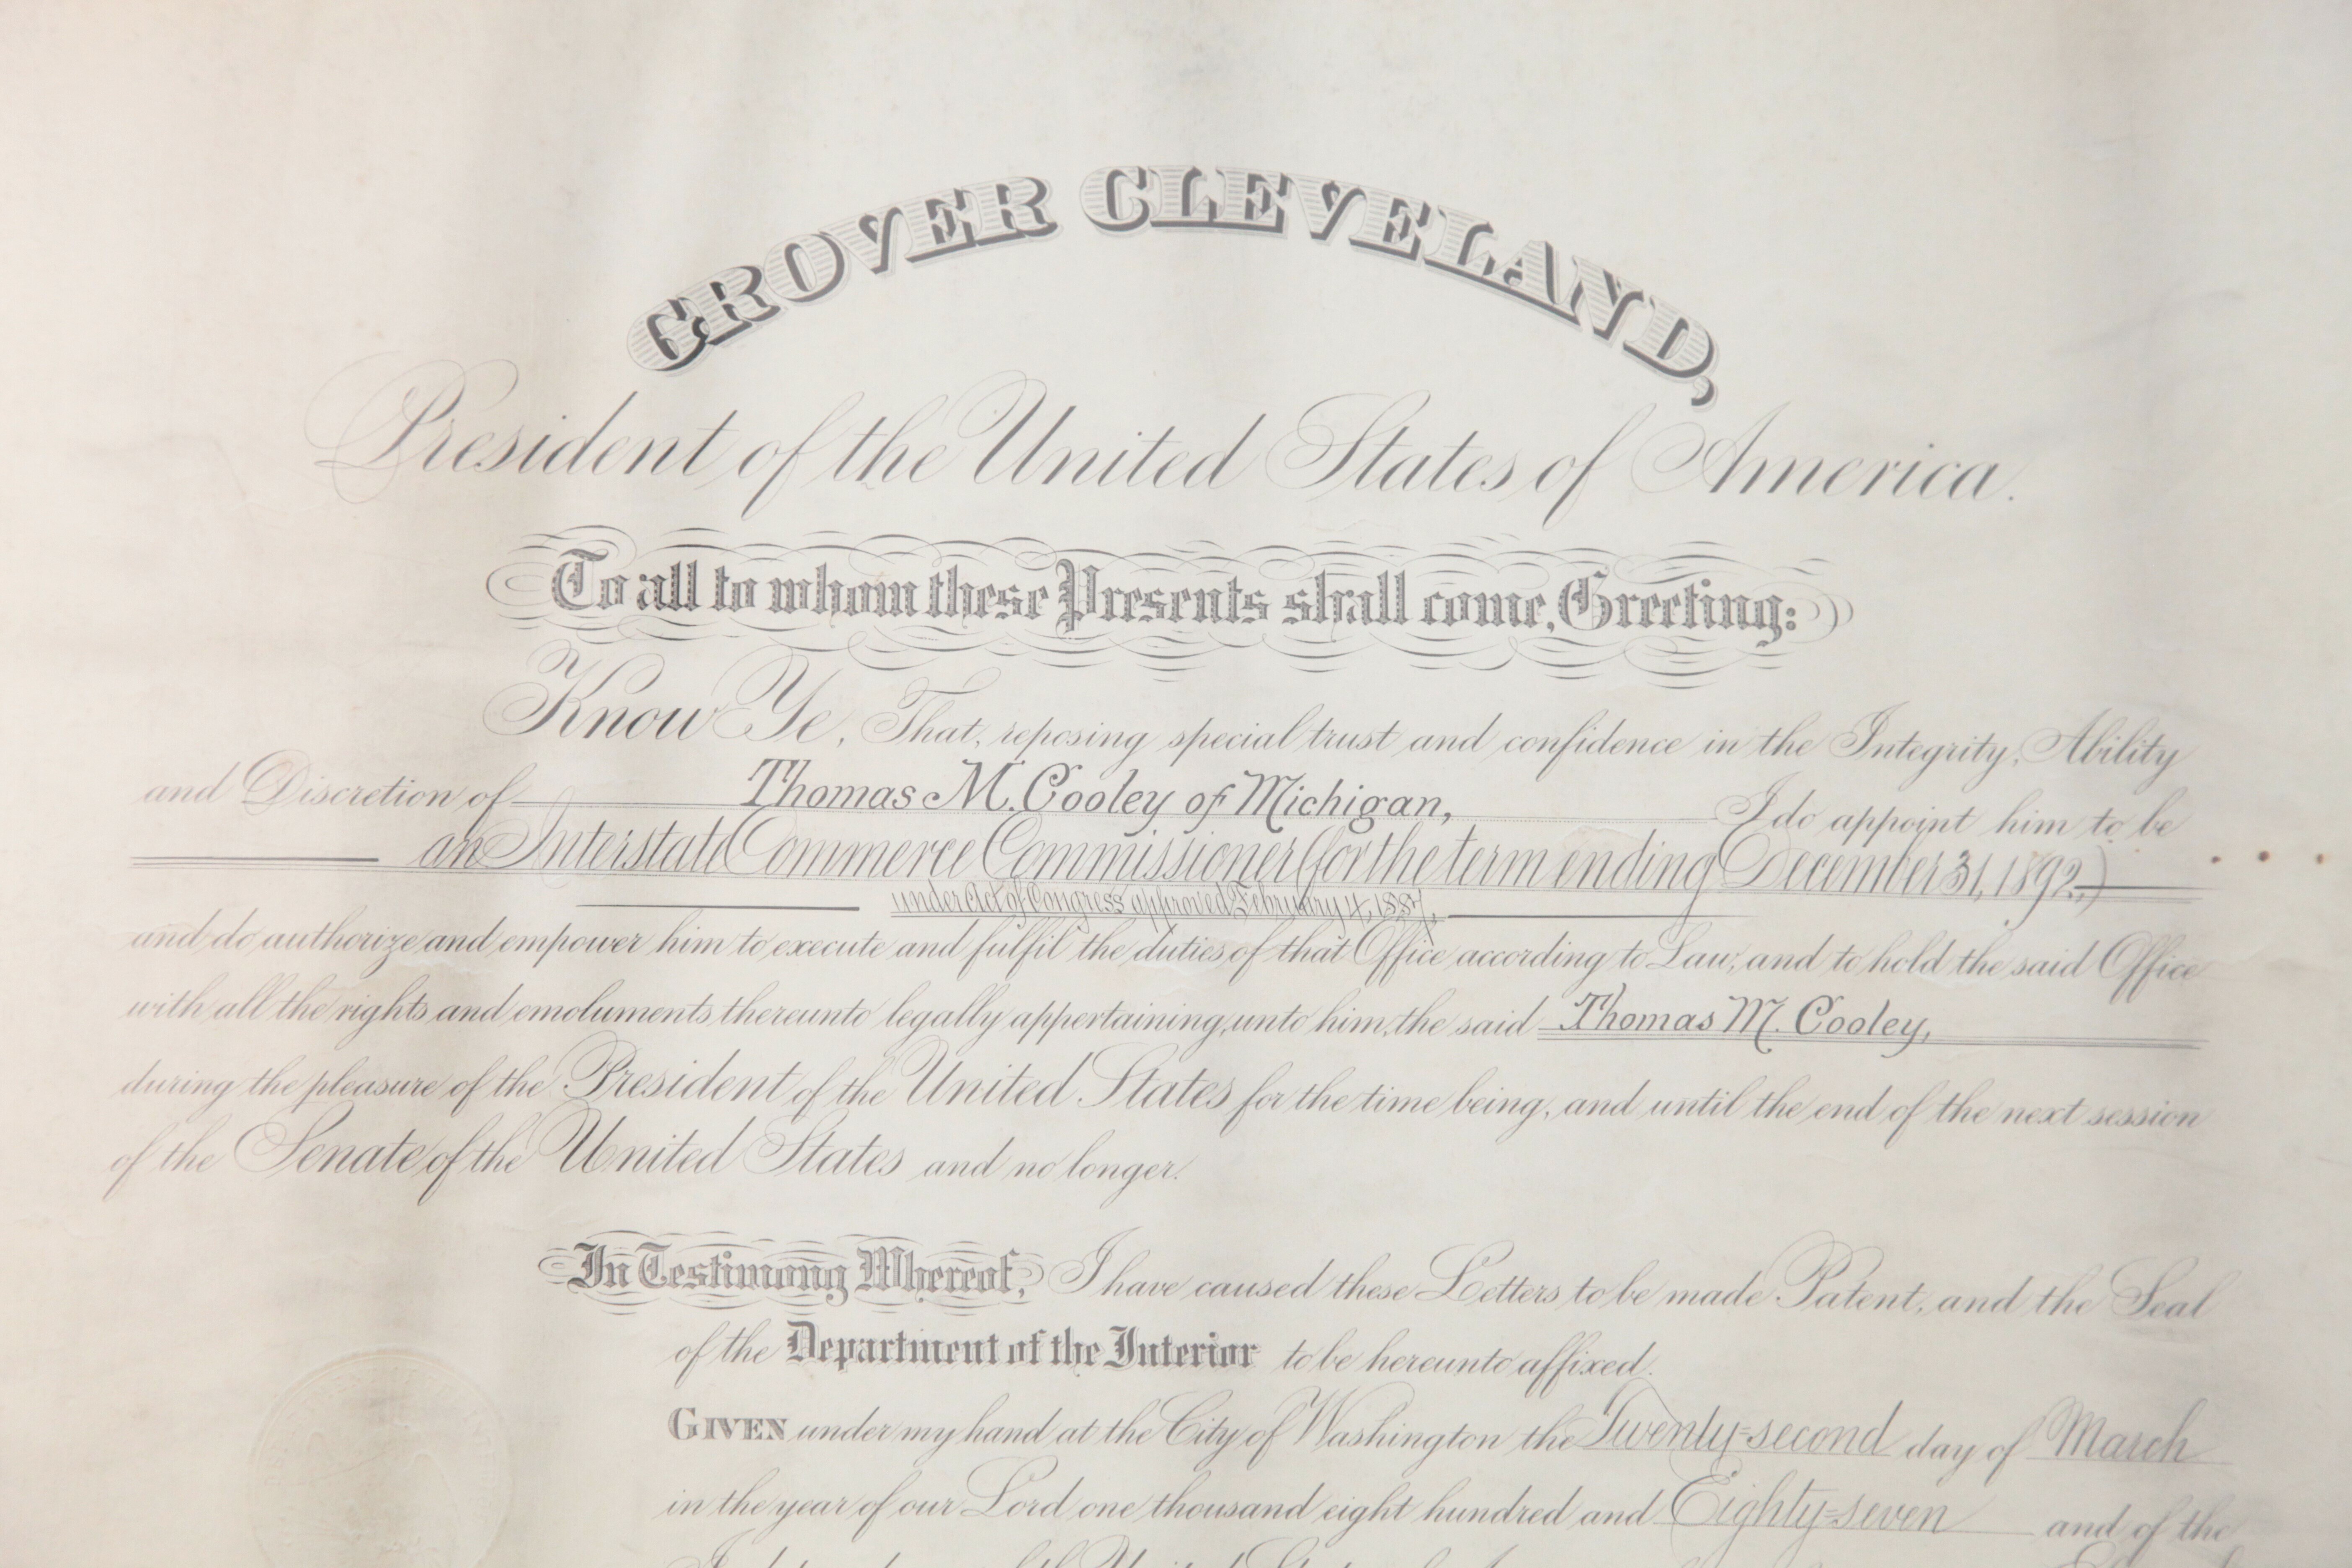 GROVER CLEVELAND,
President of the United States of America.
To all to whom these Presents shall come, Greeting:
Know Ye, That, reposing special trust and confidence in the Integrity, Ability
and Discretion of Thomas M. Cooley of Michigan, I do appoint him to be
an Interstate Commerce Commissioner (for the term ending December 31, 1892,)
under Act of Congress approved February 4, 1887,
and do authorize and empower him to execute and fulfil the duties of that Office according to Law, and to hold the said Office
with all the rights and emoluments thereunto legally appertaining, unto him, the said Thomas M. Cooley,
during the pleasure of the President of the United States for the time being, and until the end of the next session
of the Senate of the United States and no longer.
In Testimony Whereof, I have caused these Letters to be made Patent, and the Seal
of the Department of the Interior to be hereunto affixed.
GIVEN under my hand at the City of Washington the Twenty-second day of March
in the year of our Lord one thousand eight hundred and Eighty-seven and of the